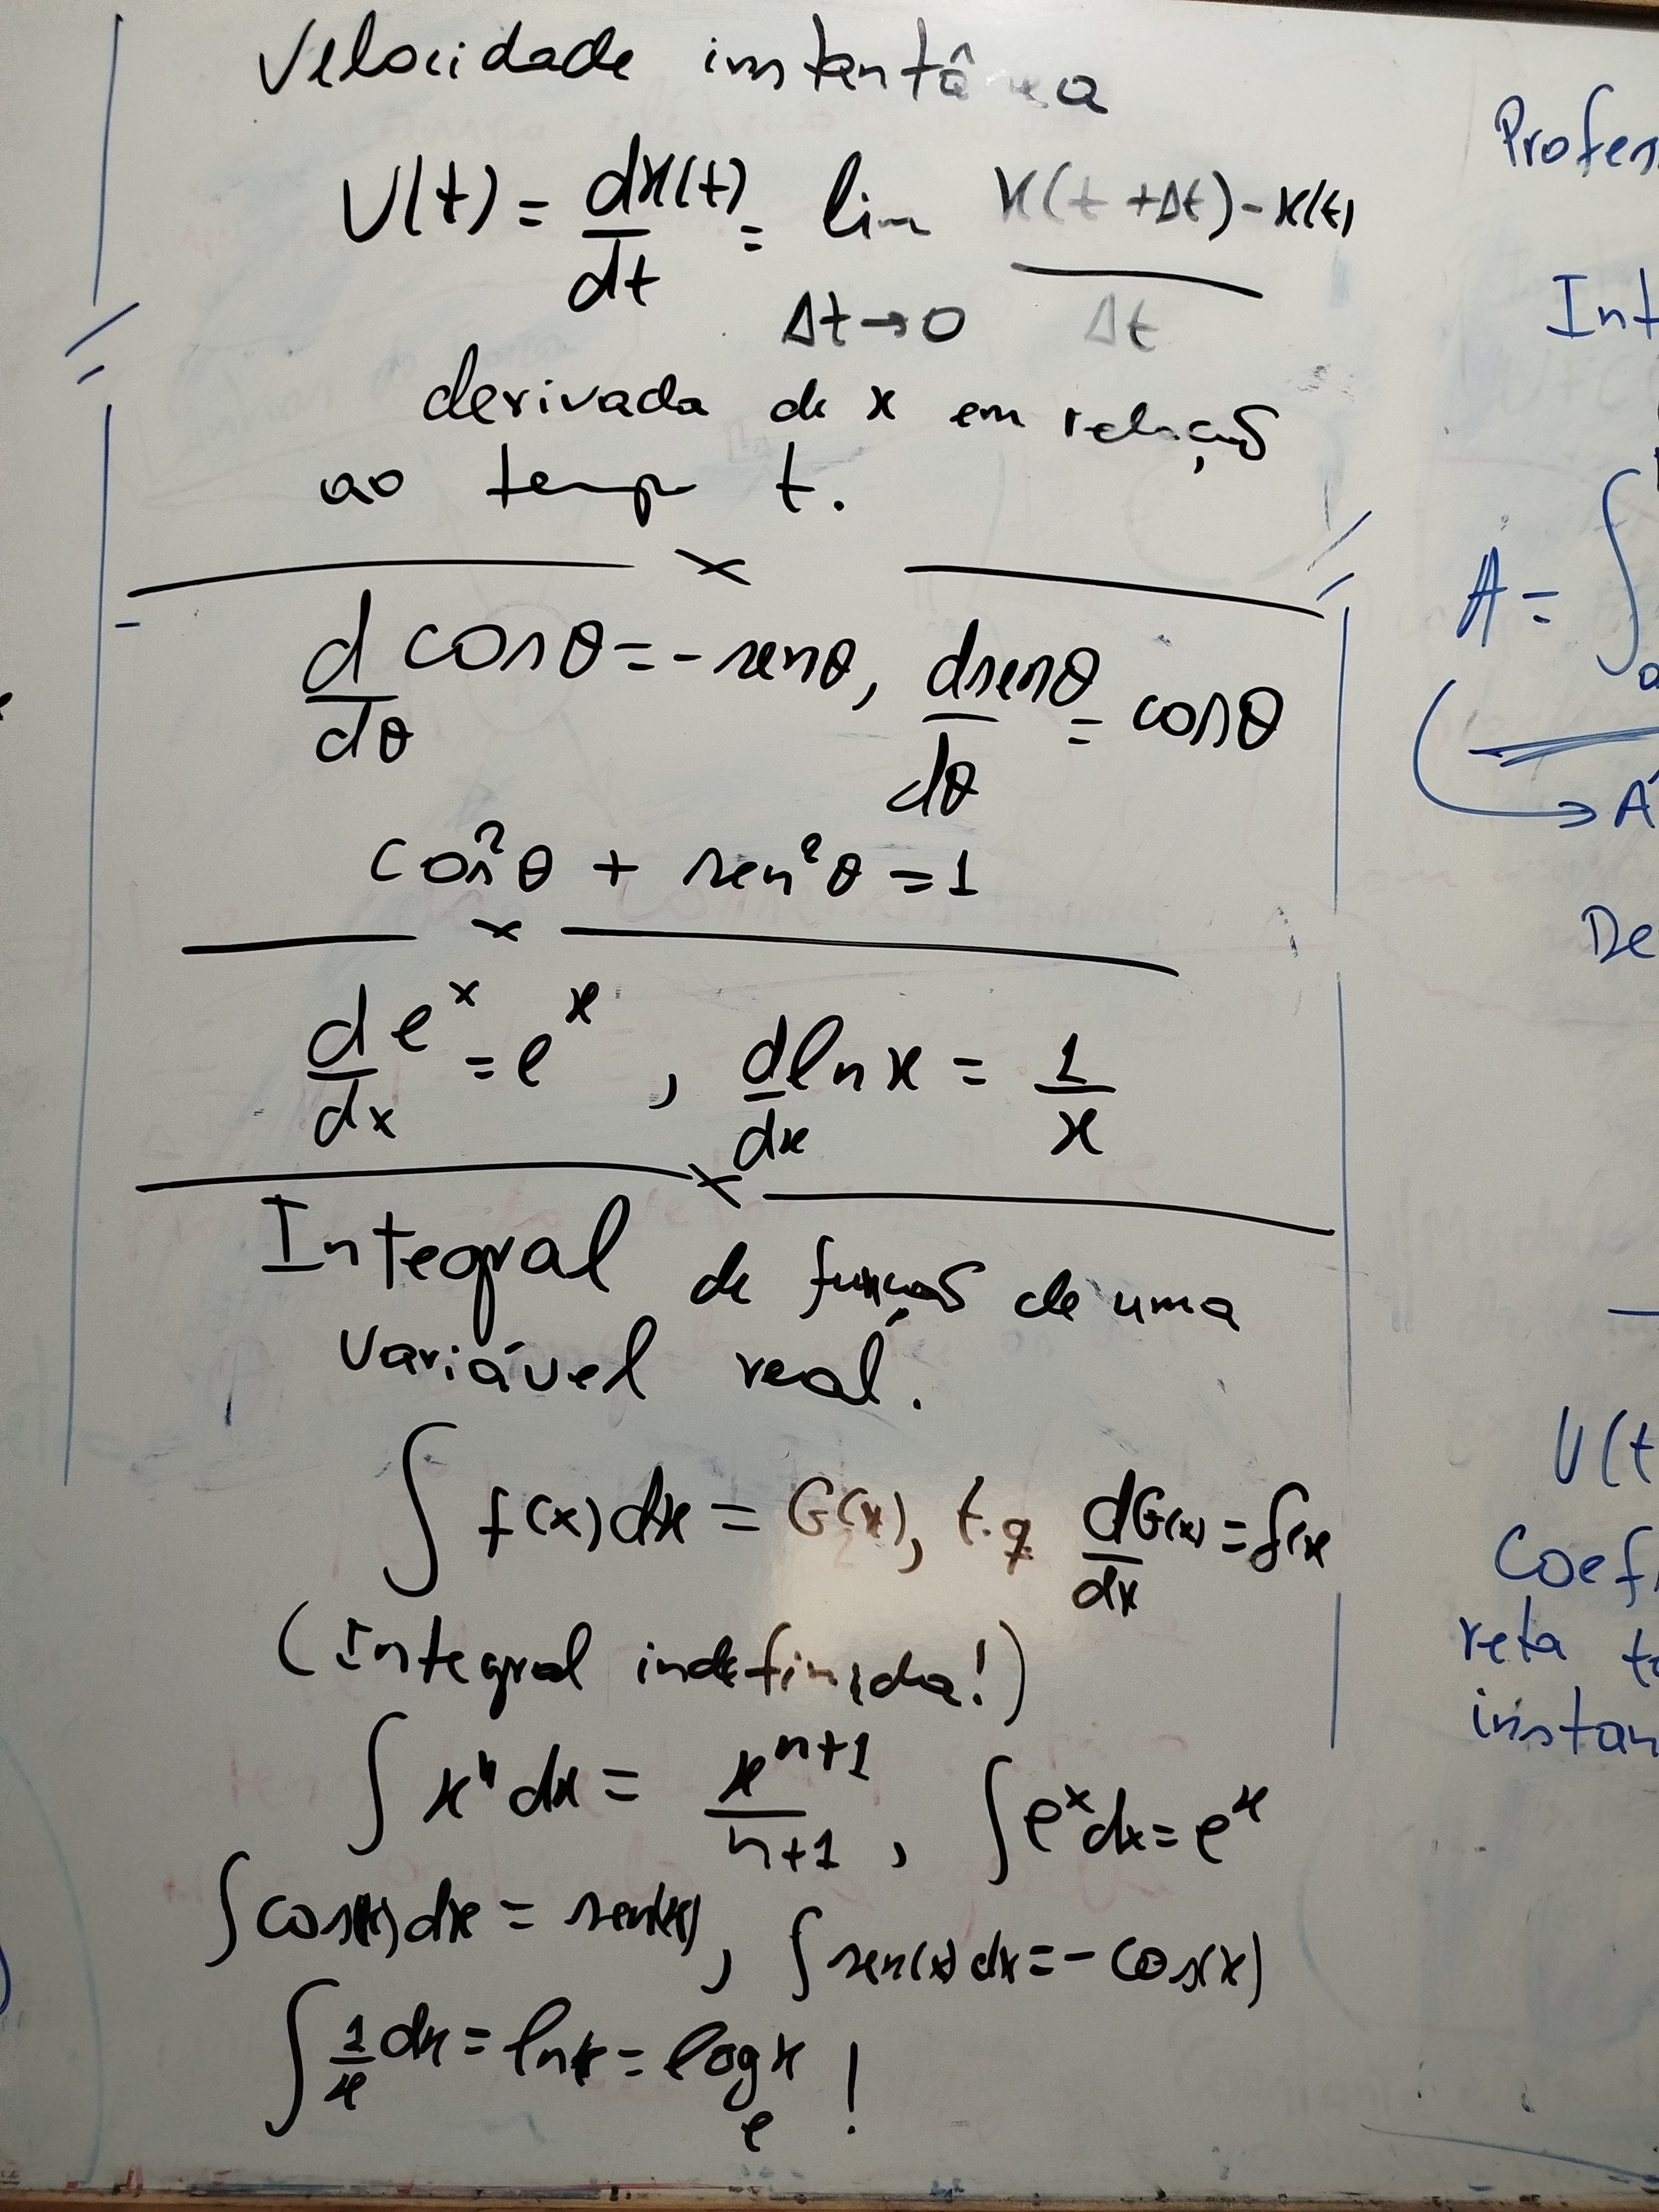 Velocidade instantânea
V(t) = dx(t)/dt = lim Δt→0 x(t+Δt) - x(t) / Δt
derivada de x em relação
ao tempo t.
d/dθ cosθ = -senθ, dsenθ/dθ = cosθ
cos²θ + sen²θ = 1
d/dx e^x = e^x, d/dx ln x = 1/x
Integral de função de uma
variável real.
∫ f(x)dx = G(x), t.q dG(x)/dx = f(x
(Integral indefinida!)
∫ x^n dx = x^(n+1)/(n+1), ∫ e^x dx = e^x
∫ cos(x) dx = sen(x), ∫ sen(x) dx = -cos(x)
∫ 1/x dx = ln x = log_e x !
Profes
Int
A = ∫
a
→ Á
De
V(t
Coef
reta t
instan